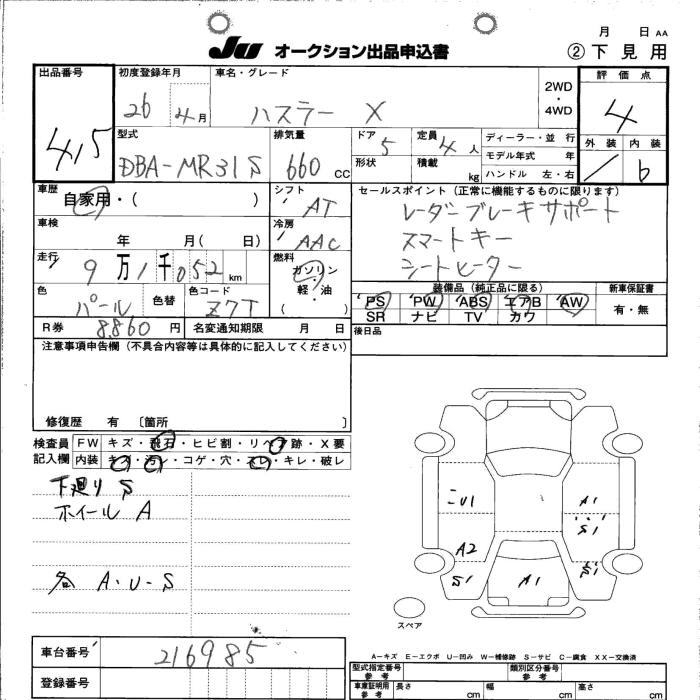 月 日 AA
JU オークション出品申込書 ② 下見用
出品番号 初度登録年月 車名・グレード 評価点
26 4月 ハスラー X 2WD・4WD 4
415
型式 排気量 ドア 5 定員 4 人 ディーラー・並 行 外装 内装
DBA-MR31S 660 CC 形状 積載 kg モデル年式 年 b
ハンドル 左・右
車歴 自家用・( ) シフト AT セールスポイント (正常に機能するものに限ります)
レーダーブレーキサポート
車検 年 月( 日) 冷房 AAC スマートキー
走行 9万1千052km 燃料 ガソリン・軽・油 ( ) シートヒーター
色 パール 色替 色コード Z7T 装備品 (純正品に限る) 新車保証書
PS PW ABS エアB AW 有・無
SR ナビ TV カワ
R券 8860 円 名変通知期限 月 日 後日品
注意事項申告欄 (不具合内容等は具体的に記入してください)
修復歴 有 〔箇所 〕
検査員 FW キズ・飛石・ヒビ割・リペア跡・X要
記入欄 内装 キズ・汚レ・コゲ・穴・スレ・キレ・破レ
下廻り S
ホイール A
各 A・U・S
U1 A1
S1
A2
S1 A1 S1
スペア
A-キズ E-エクボ U-凹み W-補修跡 S-サビ C-腐食 XX-交換済
車台番号 216985
登録番号
型式指定番号 参考 類別区分番号 参考
車庫証明用 参考 長さ cm 幅 cm 高さ cm